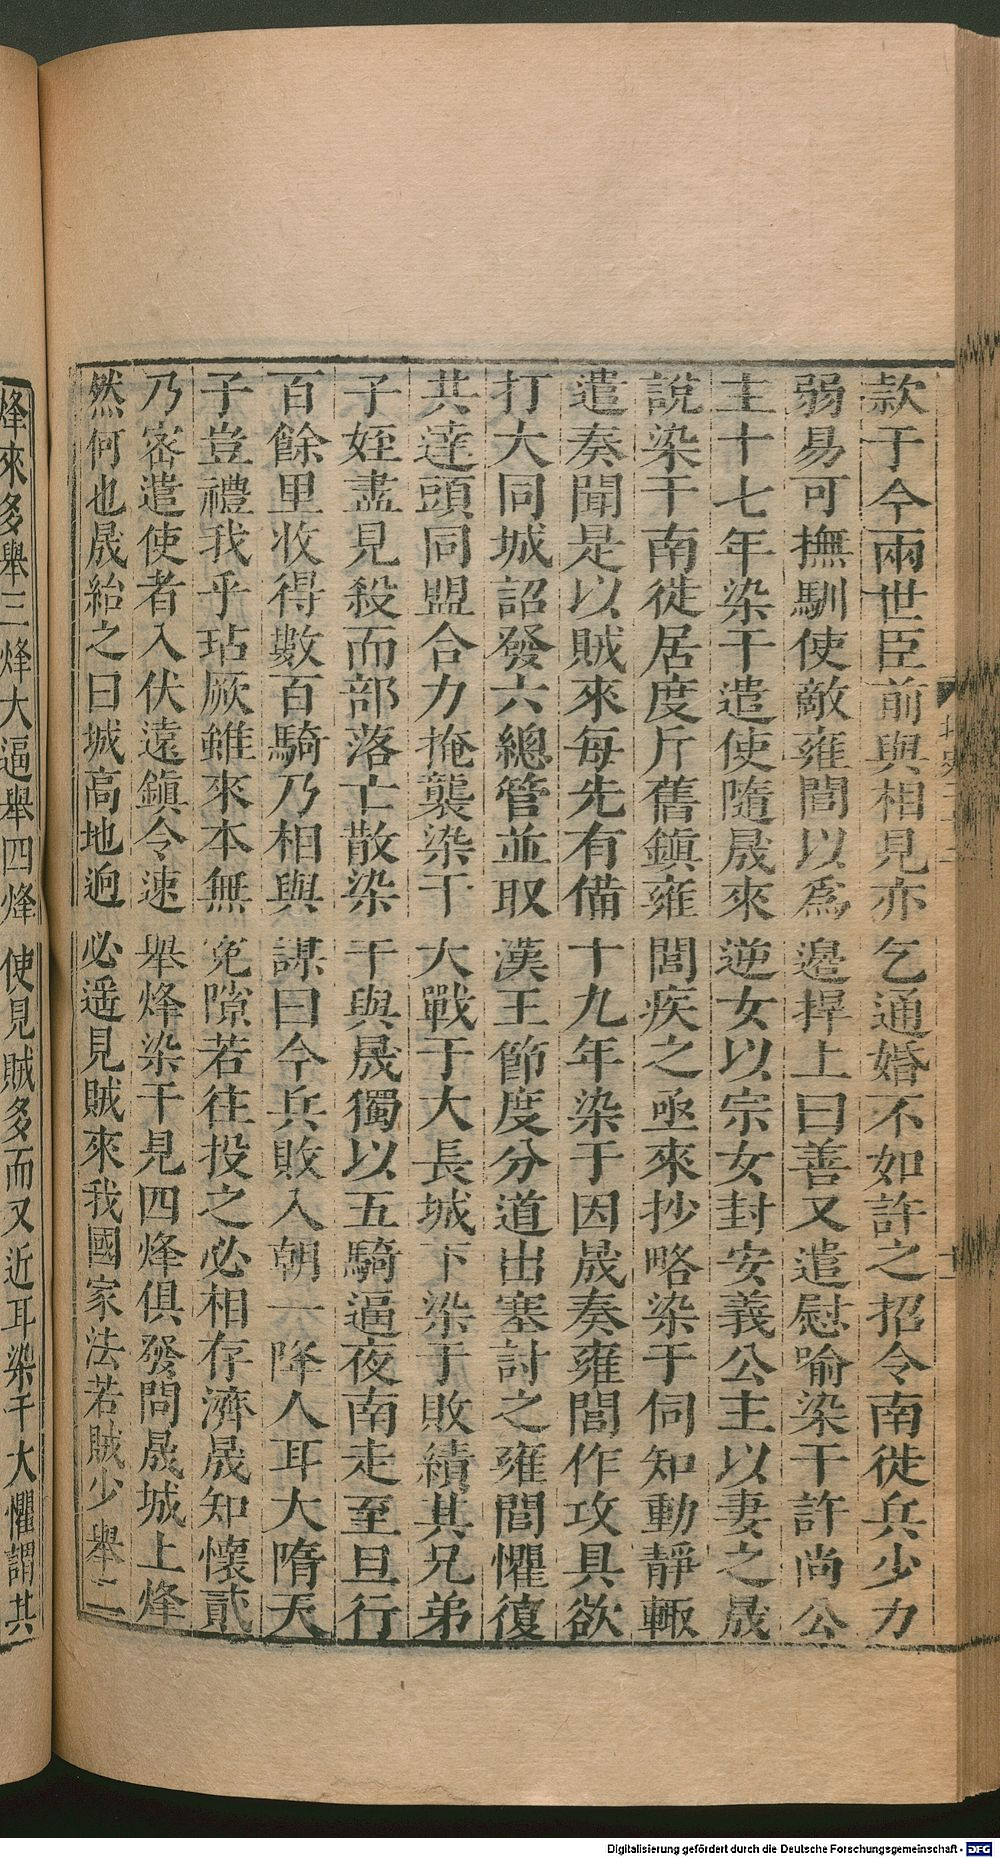 款于今兩世臣前與相見亦乞通婚不如許之招令南徙兵少力
弱易可撫馴使敵雍閭以爲邊捍上曰善又遣慰喻染干許尚公
主十七年染干遣使隨晟來逆女以宗女封安義公主以妻之晟
說染干南徙居度斤舊鎮雍閭疾之亟來抄略染干伺知動靜輙
遣奏聞是以賊來每先有備十九年染干因晟奏雍閭作攻具欲
打大同城詔發六總管並取漢王節度分道出塞討之雍閭懼復
共達頭同盟合力掩襲染干大戰于大長城下染干敗績其兄弟
子姪盡見殺而部落亡散染干與晟獨以五騎逼夜南走至旦行
百餘里收得數百騎乃相與謀曰今兵敗入朝一降人耳大隋天
子豈禮我乎玷厥雖來本無冤隙若往投之必相存濟晟知懷貳
乃密遣使者入伏遠鎮令速舉烽染干見四烽俱發問晟城上烽
然何也晟紿之曰城高地迥必遥見賊來我國家法若賊少舉二
烽來多舉三烽大逼舉四烽使見賊多而又近耳染干大懼謂其
Digitalisierung gefördert durch die Deutsche Forschungsgemeinschaft - DFG